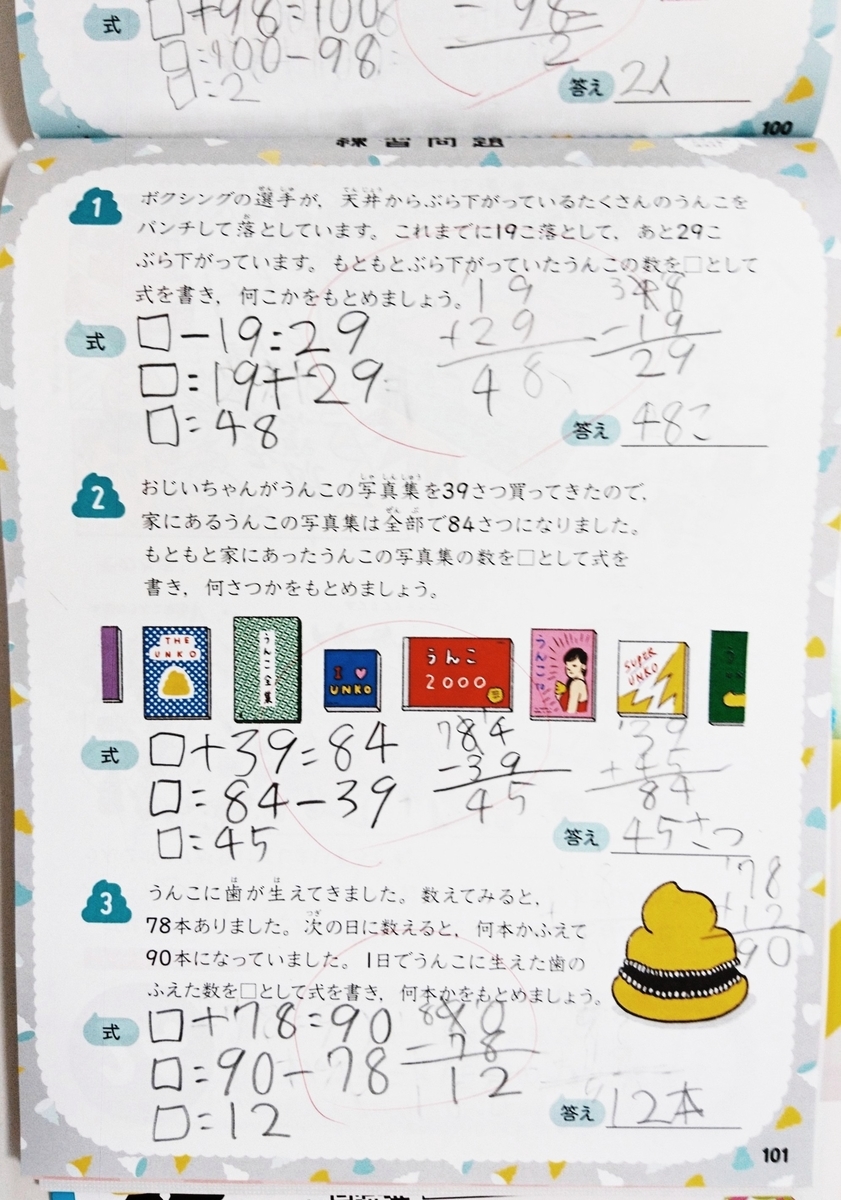 式
□+98=100
□=100-98
□=2
- 98
2
答え 2人
100
練習問題
1
ボクシングの選手が，天井からぶら下がっているたくさんのうんこを
パンチして落としています。これまでに19こ落として，あと29こ
ぶら下がっています。もともとぶら下がっていたうんこの数を□として
式を書き，何こかをもとめましょう。
式
□-19=29
□=19+29
□=48
19
+29
48
48
-19
29
答え 48こ
2
おじいちゃんがうんこの写真集を39さつ買ってきたので，
家にあるうんこの写真集は全部で84さつになりました。
もともと家にあったうんこの写真集の数を□として式を
書き，何さつかをもとめましょう。
THE
UNKO
うんこ全集
I ♥
UNKO
うんこ
2000
うんこ
SUPER
UNKO
式
□+39=84
□=84-39
□=45
7 84
-39
45
39
+45
84
答え 45さつ
3
うんこに歯が生えてきました。数えてみると，
78本ありました。次の日に数えると，何本かふえて
90本になっていました。1日でうんこに生えた歯の
ふえた数を□として式を書き，何本かをもとめましょう。
78
+12
90
式
□+78=90
□=90-78
□=12
8 90
-78
12
答え 12本
101